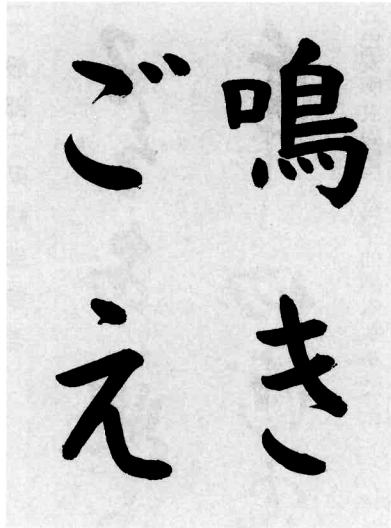 鳴き
ごえ